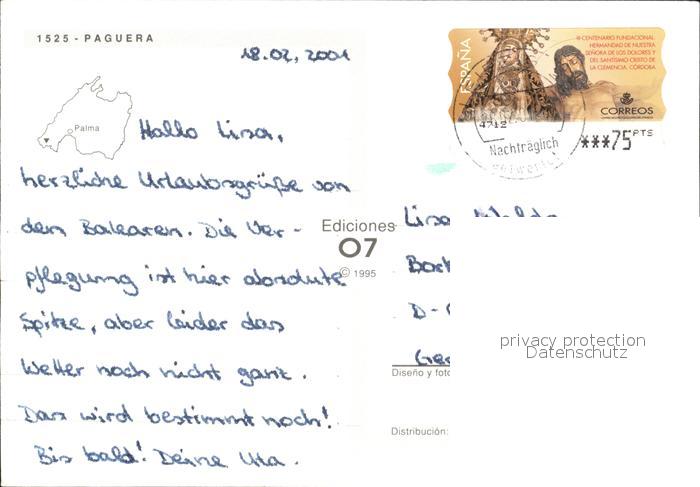 1525 - PAGUERA
18.02.2001
Palma
Hallo Lisa,
herzliche Urlaubsgrüße von
den Balearen. Die Ver-
pflegung ist hier absolute
Spitze, aber leider das
Wetter noch nicht ganz.
Das wird bestimmt noch!
Bis bald! Deine Uta.
Ediciones
07
© 1995
ESPAÑA
III CENTENARIO FUNDACIONAL
HERMANDAD DE NUESTRA
SEÑORA DE LOS DOLORES Y
DEL SANTISIMO CRISTO DE
LA CLEMENCIA. CÓRDOBA
CORREOS
***75 PTS
4712
Nachträglich
entwertet
Lisa
D-
Diseño y foto
Distribución:
privacy protection
Datenschutz